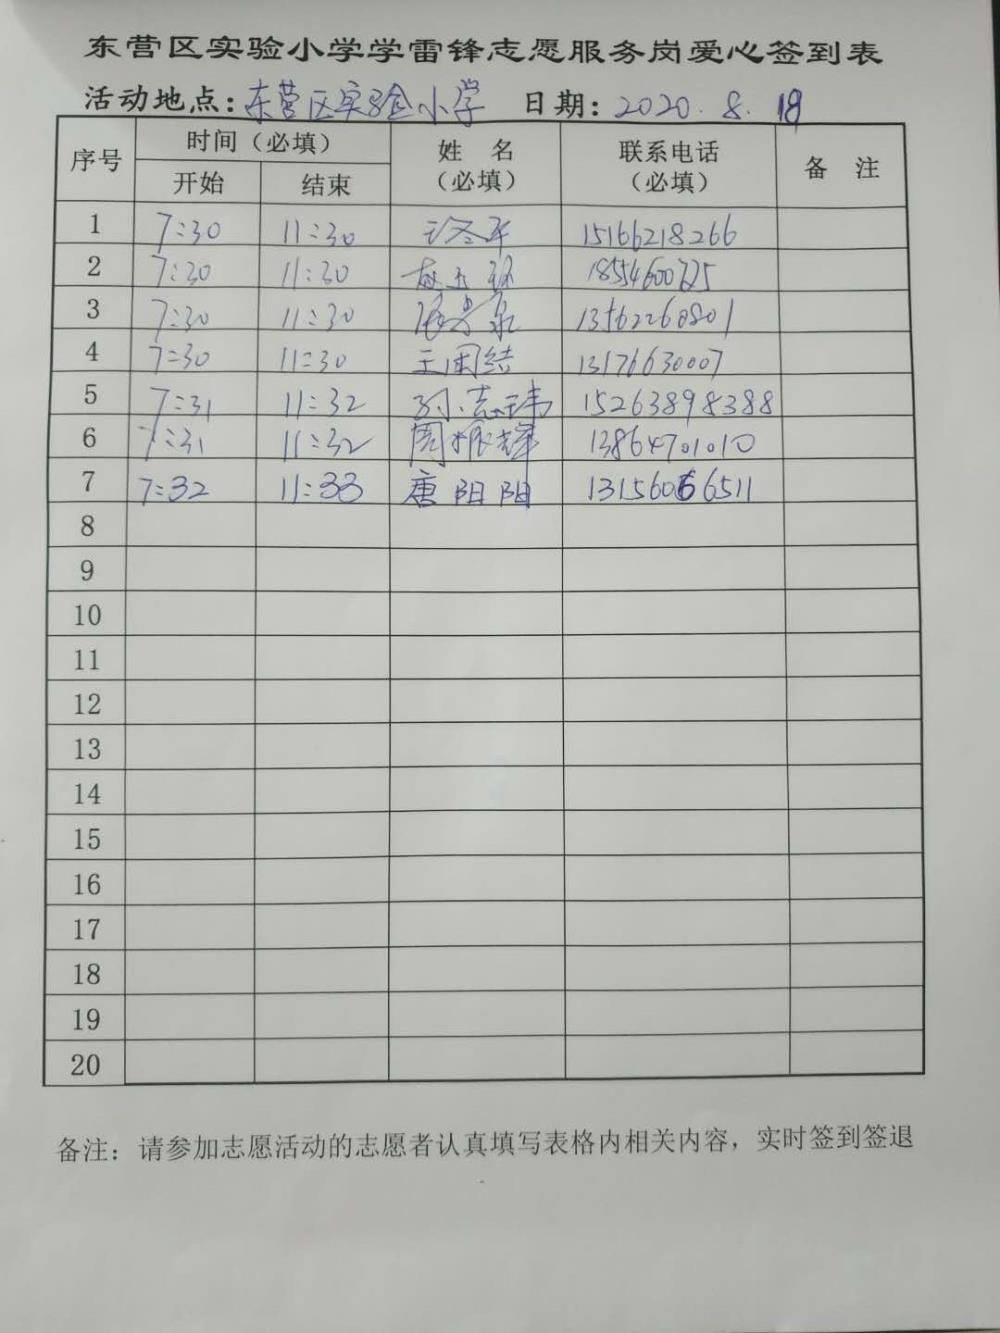 东营区实验小学学雷锋志愿服务岗爱心签到表
活动地点:东营区实验小学 日期:2020.8.18
序号 时间(必填) 姓 名(必填) 联系电话(必填) 备 注
开始 结束
1 7:30 11:30 15166218266
2 7:30 11:30 18554600725
3 7:30 11:30 13562260801
4 7:30 11:30 王团结 13176630007
5 7:31 11:32 孙志玮 15263898388
6 7:31 11:32 周振辉 13864701010
7 7:32 11:33 唐阳阳 13156066511
8
9
10
11
12
13
14
15
16
17
18
19
20
备注: 请参加志愿活动的志愿者认真填写表格内相关内容，实时签到签退